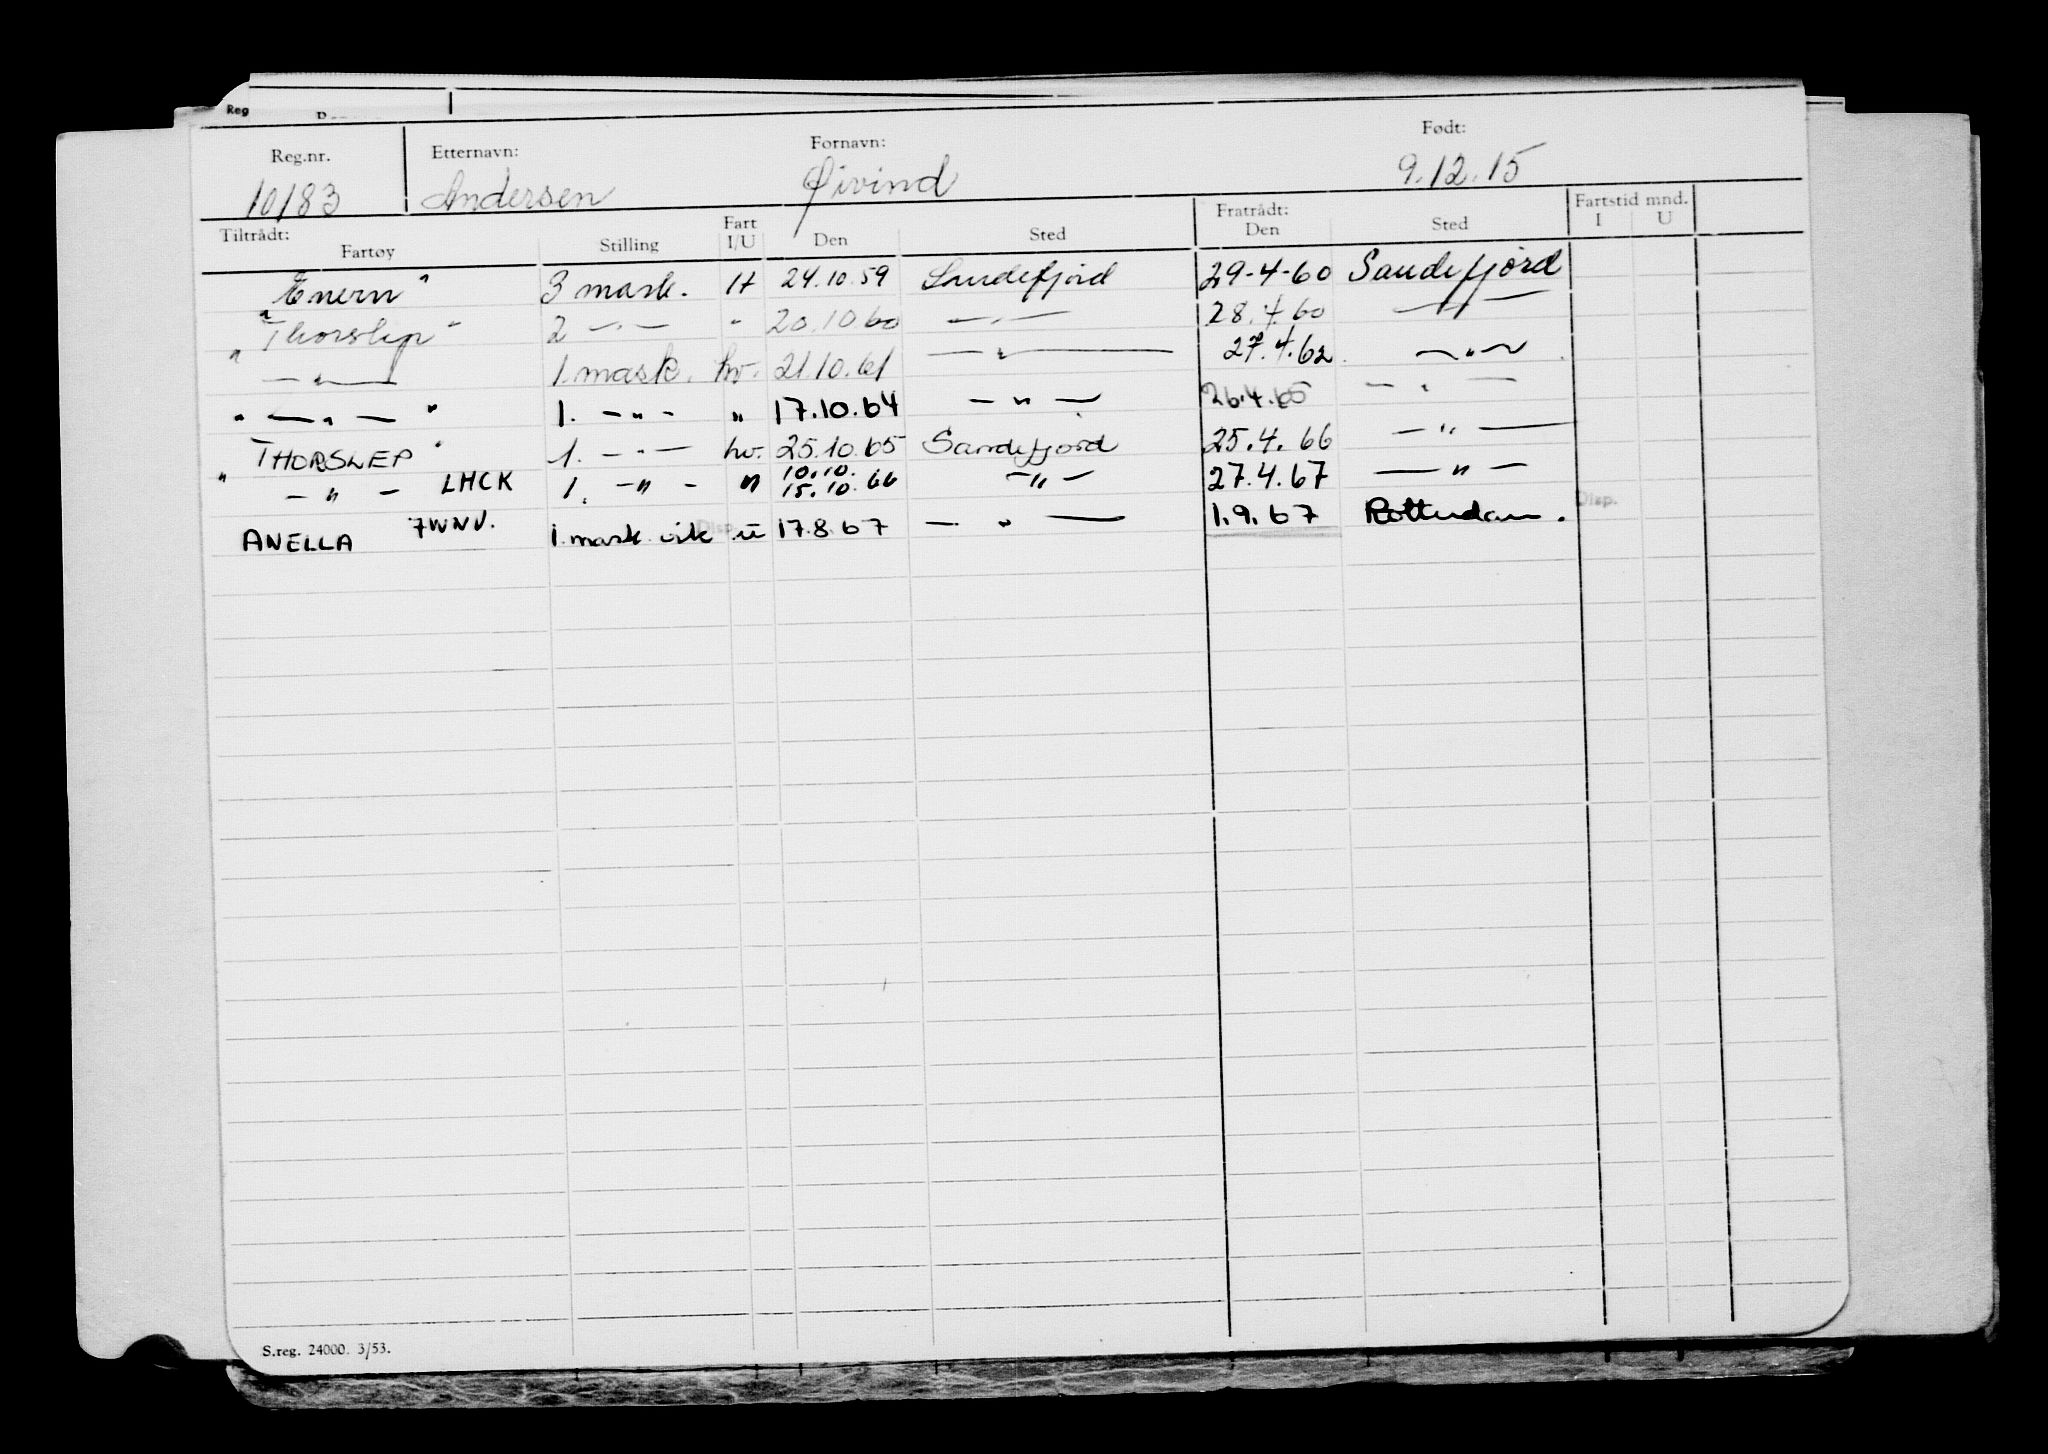 Reg
Reg.nr. Etternavn: Fornavn: Født:
10183 Andersen Øivind 9.12.15
Tiltrådt: Fratrådt: Fartstid mnd.
Fartøy Stilling Fart I/U Den Sted Den Sted I U
"Enern" 3 mask. H 24.10.59 Sandefjord 29-4-60 Sandefjord
"Thorslep" 2 — . — " 20.10.60 — " — 28.4.60 — " —
" — " — 1. mask. hv. 21.10.61 — " — 27.4.62. — " —
" — " — " 1. — " — " 17.10.64 — " — 26.4.65 — " —
"THORSLEP" 1. — " — hv. 25.10.65 Sandefjord 25.4.66 — " —
— " — LHCK 1. — " — " 10.10. 15.10.66 — " — 27.4.67 — " —
ANELLA 7WNV. 1. mask vik u 17.8.67 — " — 1.9.67 Rotterdam. Disp.
S.reg. 24000. 3/53.